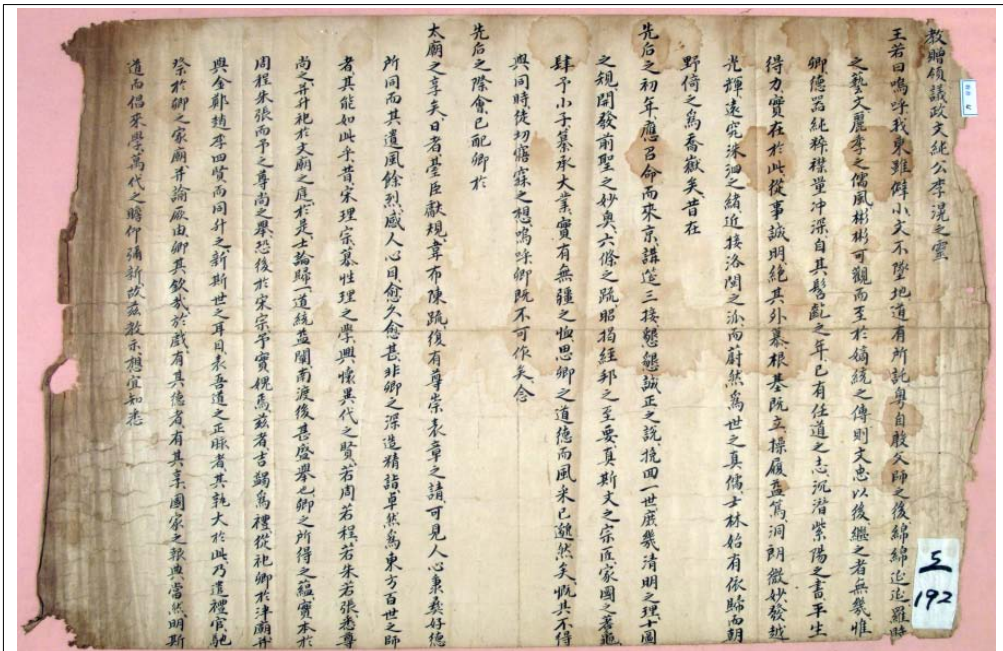 教贈領議政文純公李滉之靈
王若曰嗚呼我東雖僻小文不墜地道有所託粤自殷父師之後綿綿延延羅時
之藝文麗季之儒風彬彬可觀而至於嫡統之傳則文忠以後繼之者無幾惟
卿德器純粹襟量冲深自其髫齔之年已有任道之志沉潛紫陽之書平生
得力實在於此從事誠明絶其外慕根基旣立操履益篤洞朗微妙發越
光輝遠究洙泗之緖近接洛閩之派而蔚然爲世之眞儒士林始有依歸而朝
野倚之爲喬嶽矣昔在
先后之初年應召命而來京講筵三接懇懇誠正之說挽回一世庶幾淸明之理十圖
之規開發前聖之妙奥六條之疏昭揭經邦之至要眞斯文之宗匠家國之蓍龜
肆予小子纂承大業實有無疆之恤思卿之道德而風采已邈然矣慨其不得
與同時徒切寤寐之想嗚呼卿旣不可作矣念
先后之際會已配卿於
太廟之享矣日者臺臣獻規韋布陳疏復有尊崇表章之請可見人心秉彝好德
所同而其遺風餘烈感人心目愈久愈甚非卿之深造精詣卓然爲東方百世之師
者其能如此乎昔宋理宗慕性理之學興懷異代之賢若周若程若朱若張悉尊
尚之幷升祀於文廟之庭於是士論歸一道統益闡南渡後甚盛擧也卿之所得之蘊實本於
周程朱張而予之尊尚之擧恐後於宋宗予實愧焉玆者吉蠲爲禮從祀卿於泮廟幷
與金鄭趙李四賢而同升之新斯世之耳目表吾道之正脉者其孰大於此乃遣禮官馳
祭於卿之家廟幷論厥由卿其欽哉於戱有其德者有其享國家之報典當然明斯
道而倡來學萬代之瞻仰彌新故玆教示想宜知悉
五
192